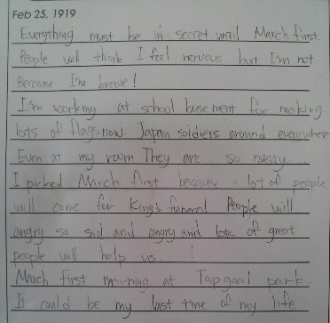 Feb 25, 1919
Everything must be in secret until March first.
People will think I feel nervous but I'm not
Because I'm brave!
I'm working at school basement for making
lots of flags now Japan soldiers around everywhere
Even at my room They are so nasty
I picked March first because a lot of people
will come for King's funeral People will
angry so sad and angry and lots of great
people will help us !
March first morning at Tapgoal park.
It could be my last time of my life